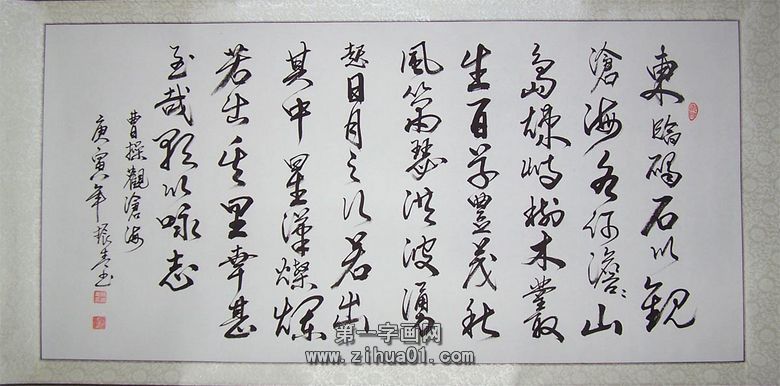 東臨碣石以觀
滄海水何澹〻山
島竦峙樹木叢
生百草豐茂秋
風蕭瑟洪波湧
起日月之行若出
其中星漢燦爛
若出其里幸甚
至哉歌以咏志
曹操觀滄海
庚寅年振书
第一字画网
www.zihua01.com